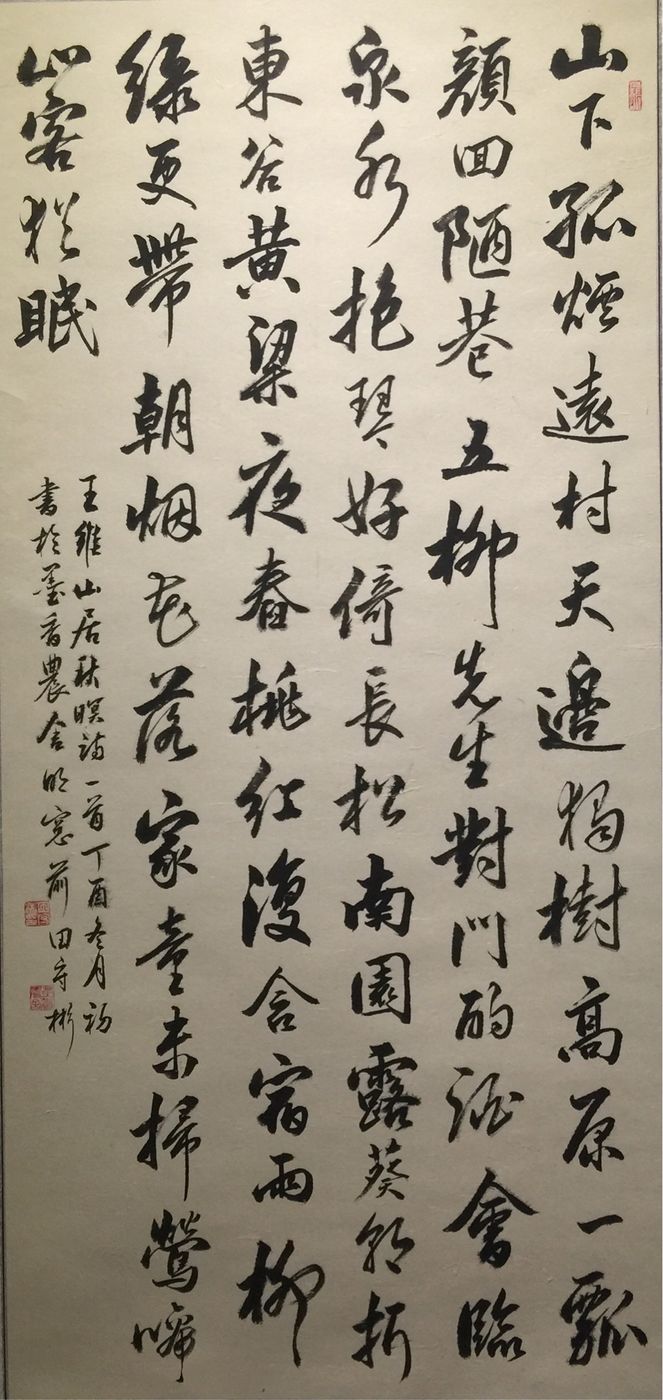 山下孤煙遠村天邊獨樹高原一瓢
顏回陋巷五柳先生對門酌酒會臨
泉水抱琴好倚長松南園露葵朝折
東谷黃粱夜舂桃紅復含宿雨柳
綠更帶朝烟花落家童未掃鶯啼
山客猶眠
王維山居秋暝詩一首丁酉冬月初
書於墨香農舍明窓前田守彬